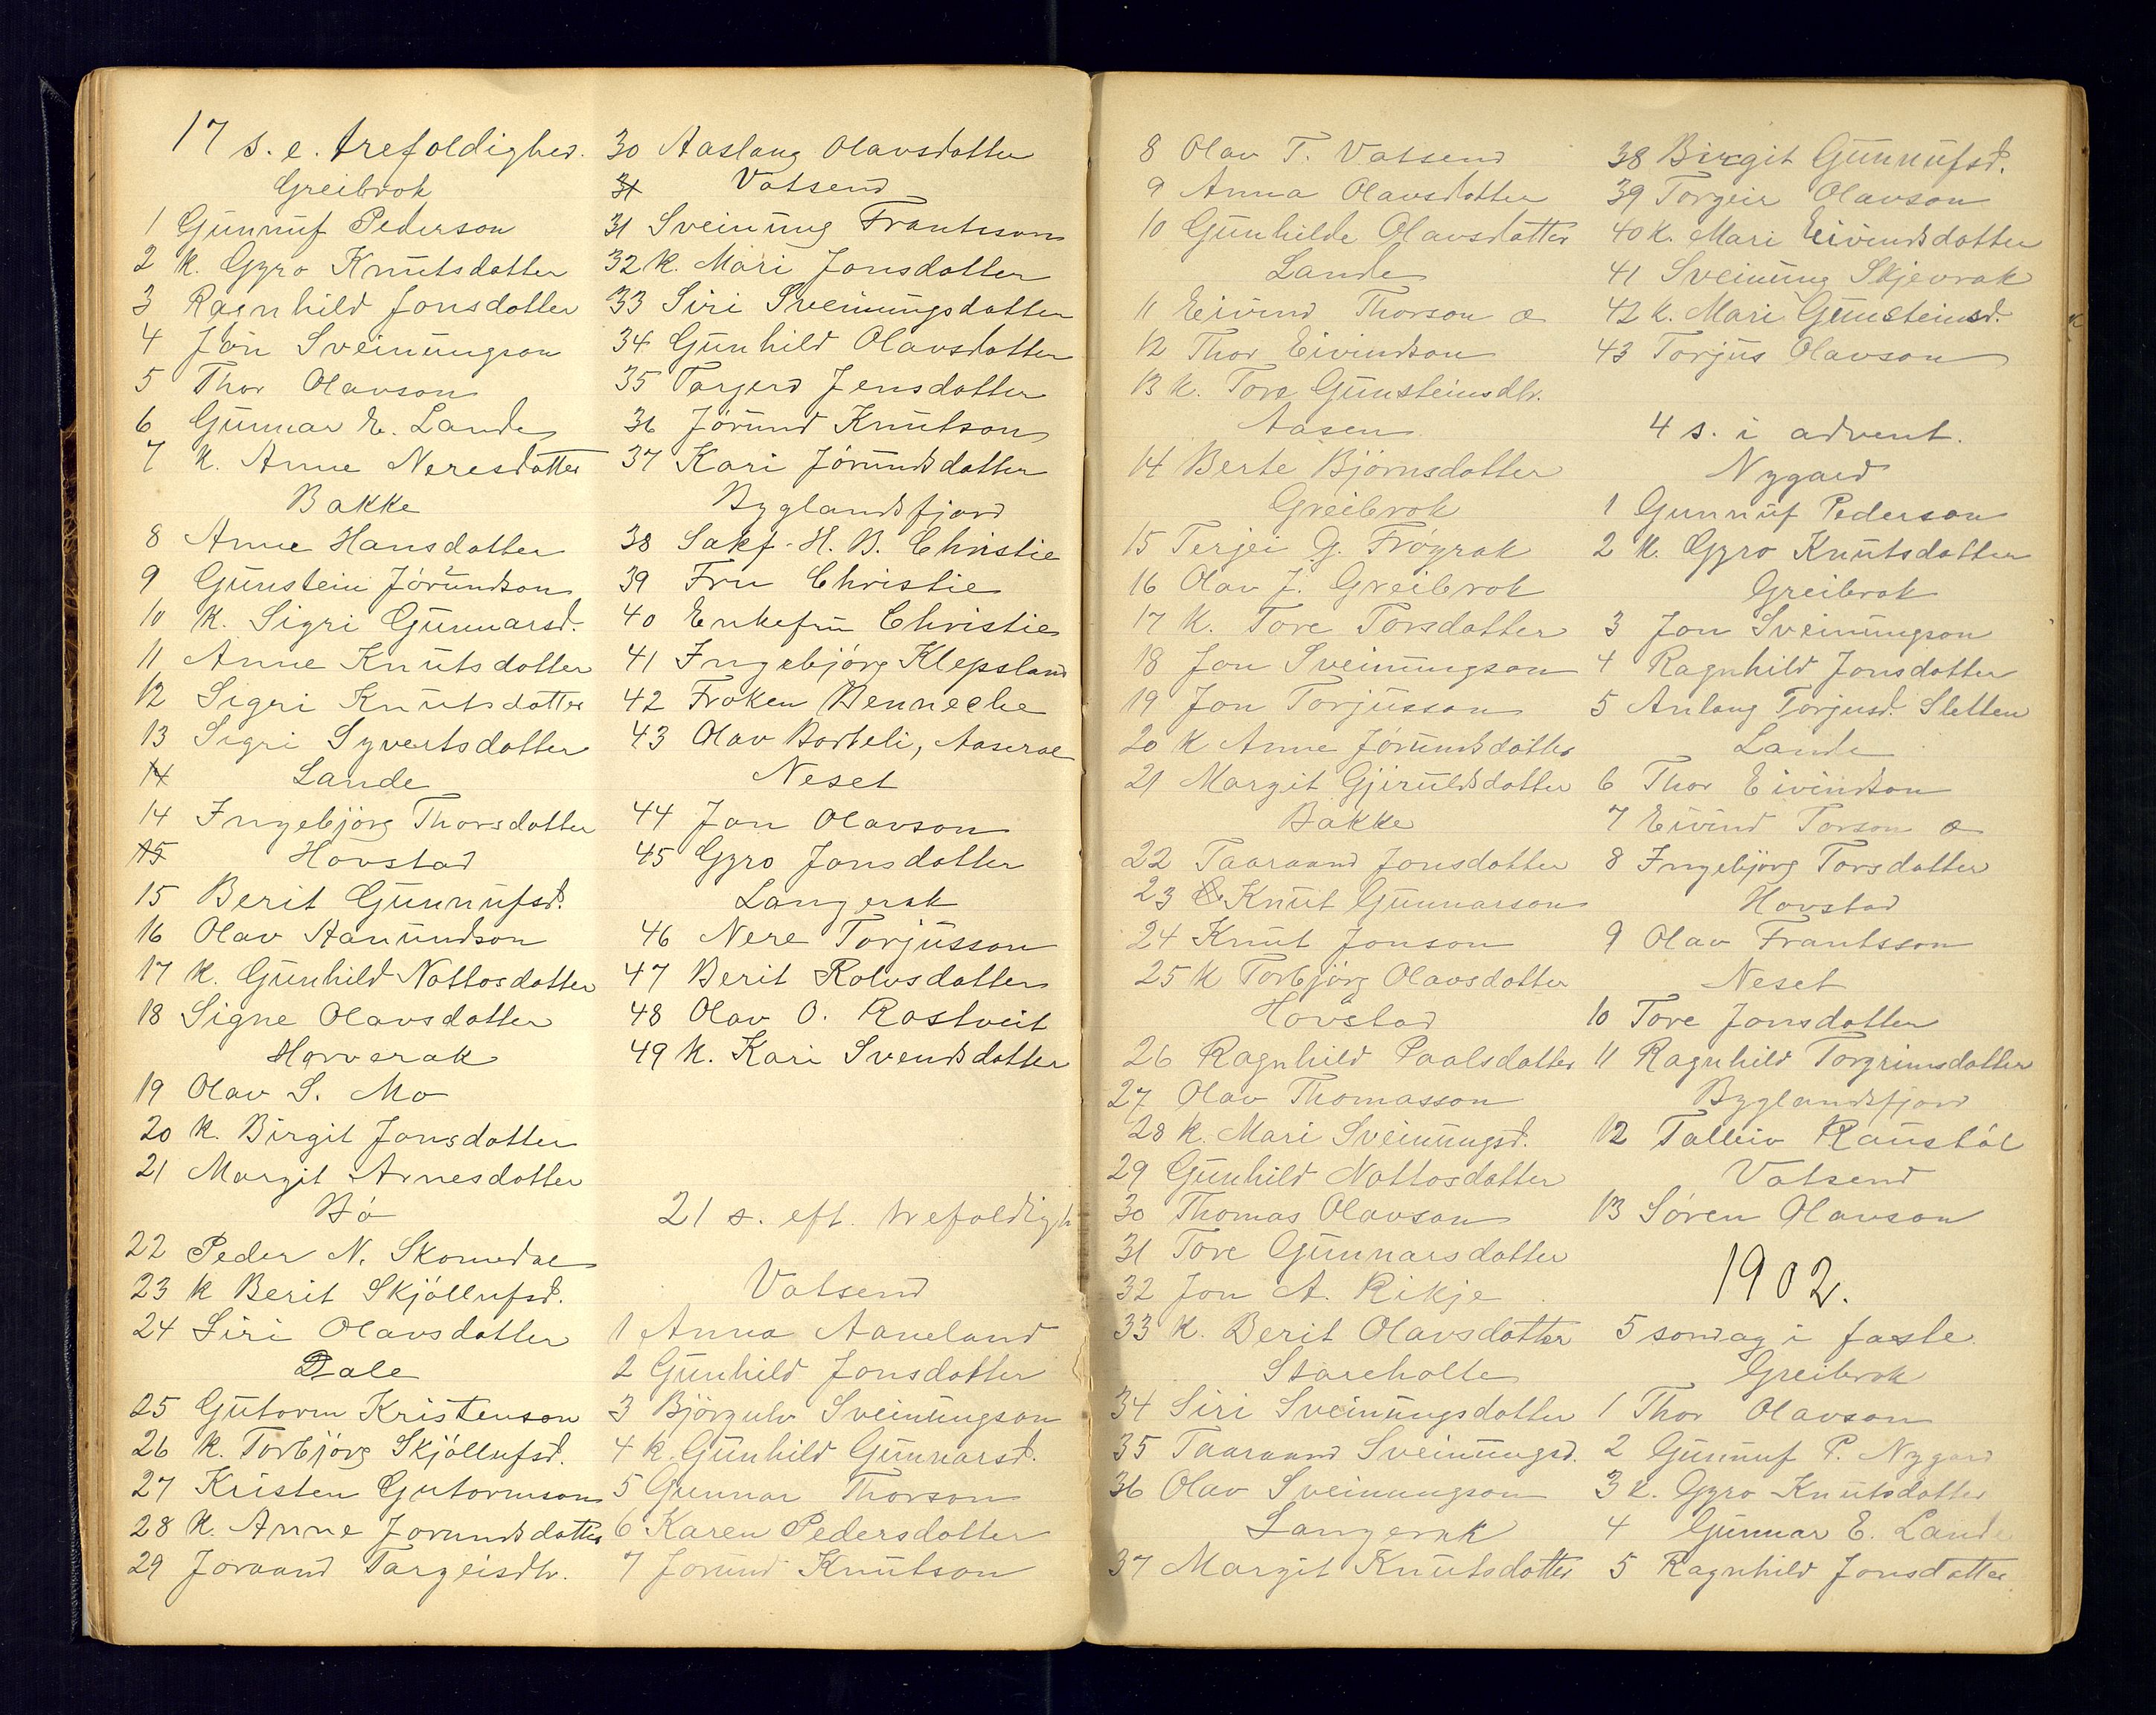 17 s. e. trefoldighed.
Greibrok
1 Gunnuf Pederson
2 K. Gyro Knutsdotter
3 Ragnhild Jonsdotter
4 Jon Sveinungson
5 Thor Olavson
6 Gunnar E. Lande
7 K. Anne Neresdotter
Bakke
8 Anne Hansdotter
9 Gunstein Jörundson
10 K. Sigri Gunnarsd.
11 Anne Knutsdotter
12 Sigri Knutsdotter
13 Sigri Syvertsdotter
14 Lande
14 Ingebjörg Thorsdotter
15 Hovstad
15 Berit Gunnufsd.
16 Olav Aanundson
17 K. Gunhild Nottosdotter
18 Signe Olavsdotter
Horverak
19 Olav S. Mo
20 K. Birgit Jonsdotter
21 Margit Arnesdotter
Bö
22 Peder N. Skomedal
23 K Berit Skjöllufsd.
24 Siri Olavsdotter
Dale
25 Gutorm Kristenson
26 K. Torbjörg Skjöllufsd.
27 Kristen Gutormson
28 K. Anne Jorundsdotter
29 Joraand Targeisdtr.
30 Aaslaug Olavsdotter
31 Vatsend
31 Sveinung Frantsson
32 K. Mari Jonsdotter
33 Siri Sveinungsdotter
34 Gunhild Olavsdotter
35 Torjerd Jensdotter
36 Jörund Knutson
37 Kari Jörundsdotter
Byglandsfjord
38 Sakf. H. B. Christie
39 Fru Christie
40 Enkefru Christie
41 Ingebjörg Klepsland
42 Froken Benneche
43 Olav Borteli, Aaseral
Neset
44 Jon Olavson
45 Gyro Jonsdotter
Langerak
46 Nere Torjusson
47 Berit Rolvsdotter
48 Olav O. Rostveit
49 K. Kari Svendsdotter
21 s. eft. trefoldigh
Vatsend
1 Anna Aaneland
2 Gunhild Jonsdotter
3 Björgulv Sveinungson
4 K. Gunhild Gunnarsd.
5 Gunnar Thorson
6 Karen Pedersdotter
7 Jorund Knutson
8 Olav T. Vatsend
9 Anna Olavsdotter
10 Gunhilde Olavsdotter
Lande
11 Eivind Thorson æ
12 Thor Eivindson
13 K. Tore Gunsteinsdtr.
Aasen
14 Berte Björnsdotter
Greibrok
15 Terjei G. Frögrak
16 Olav J. Greibrok
17 K. Tore Torsdotter
18 Jon Sveinungson
19 Jon Torjusson
20 K Anne Jörundsdotter
21 Margit Gjeruldsdotter
Bakke
22 Taaraand Jonsdotter
23 Knut Gunnarson
24 Knut Jonson
25 K Torbjörg Olavsdotter
Hovstad
26 Ragnhild Paalsdotter
27 Olav Thomasson
28 K. Mari Sveinungsd.
29 Gunhild Nottosdotter
30 Thomas Olavson
31 Tore Gunnarsdotter
32 Jon A. Rikje
33 K. Berit Olavsdotter
Stareholte
34 Siri Sveinungsdotter
35 Taaraand Sveinungsd.
36 Olav Sveinungson
Langerak
37 Margit Knutsdotter
38 Birgit Gunnufsd.
39 Torgeir Olavson
40 K. Mari Eivindsdotter
41 Sveinung Skjevrak
42 K. Mari Gunsteinsd.
43 Torjus Olavson
4 s. i advent.
Nygard
1 Gunnuf Pederson
2 K. Gyro Knutsdotter
Greibrok
3 Jon Sveinungson
4 Ragnhild Jonsdotter
5 Anlaug Torjusd. Sletten
Lande
6 Thor Eivindson
7 Eivind Torson æ
8 Ingebjörg Torsdotter
Hovstad
9 Olav Frantsson
Neset
10 Tore Jonsdotter
11 Ragnhild Torgrimsdotter
Byglandsfjord
12 Talleiv Raustöl
Vatsend
13 Sören Olavson
1902.
5 sondag i faste.
Greibrok
1 Thor Olavson
2 Gunnuf P. Nygard
3 K. Gyro Knutsdotter
4 Gunnar E. Lande
5 Ragnhild Jonsdotter